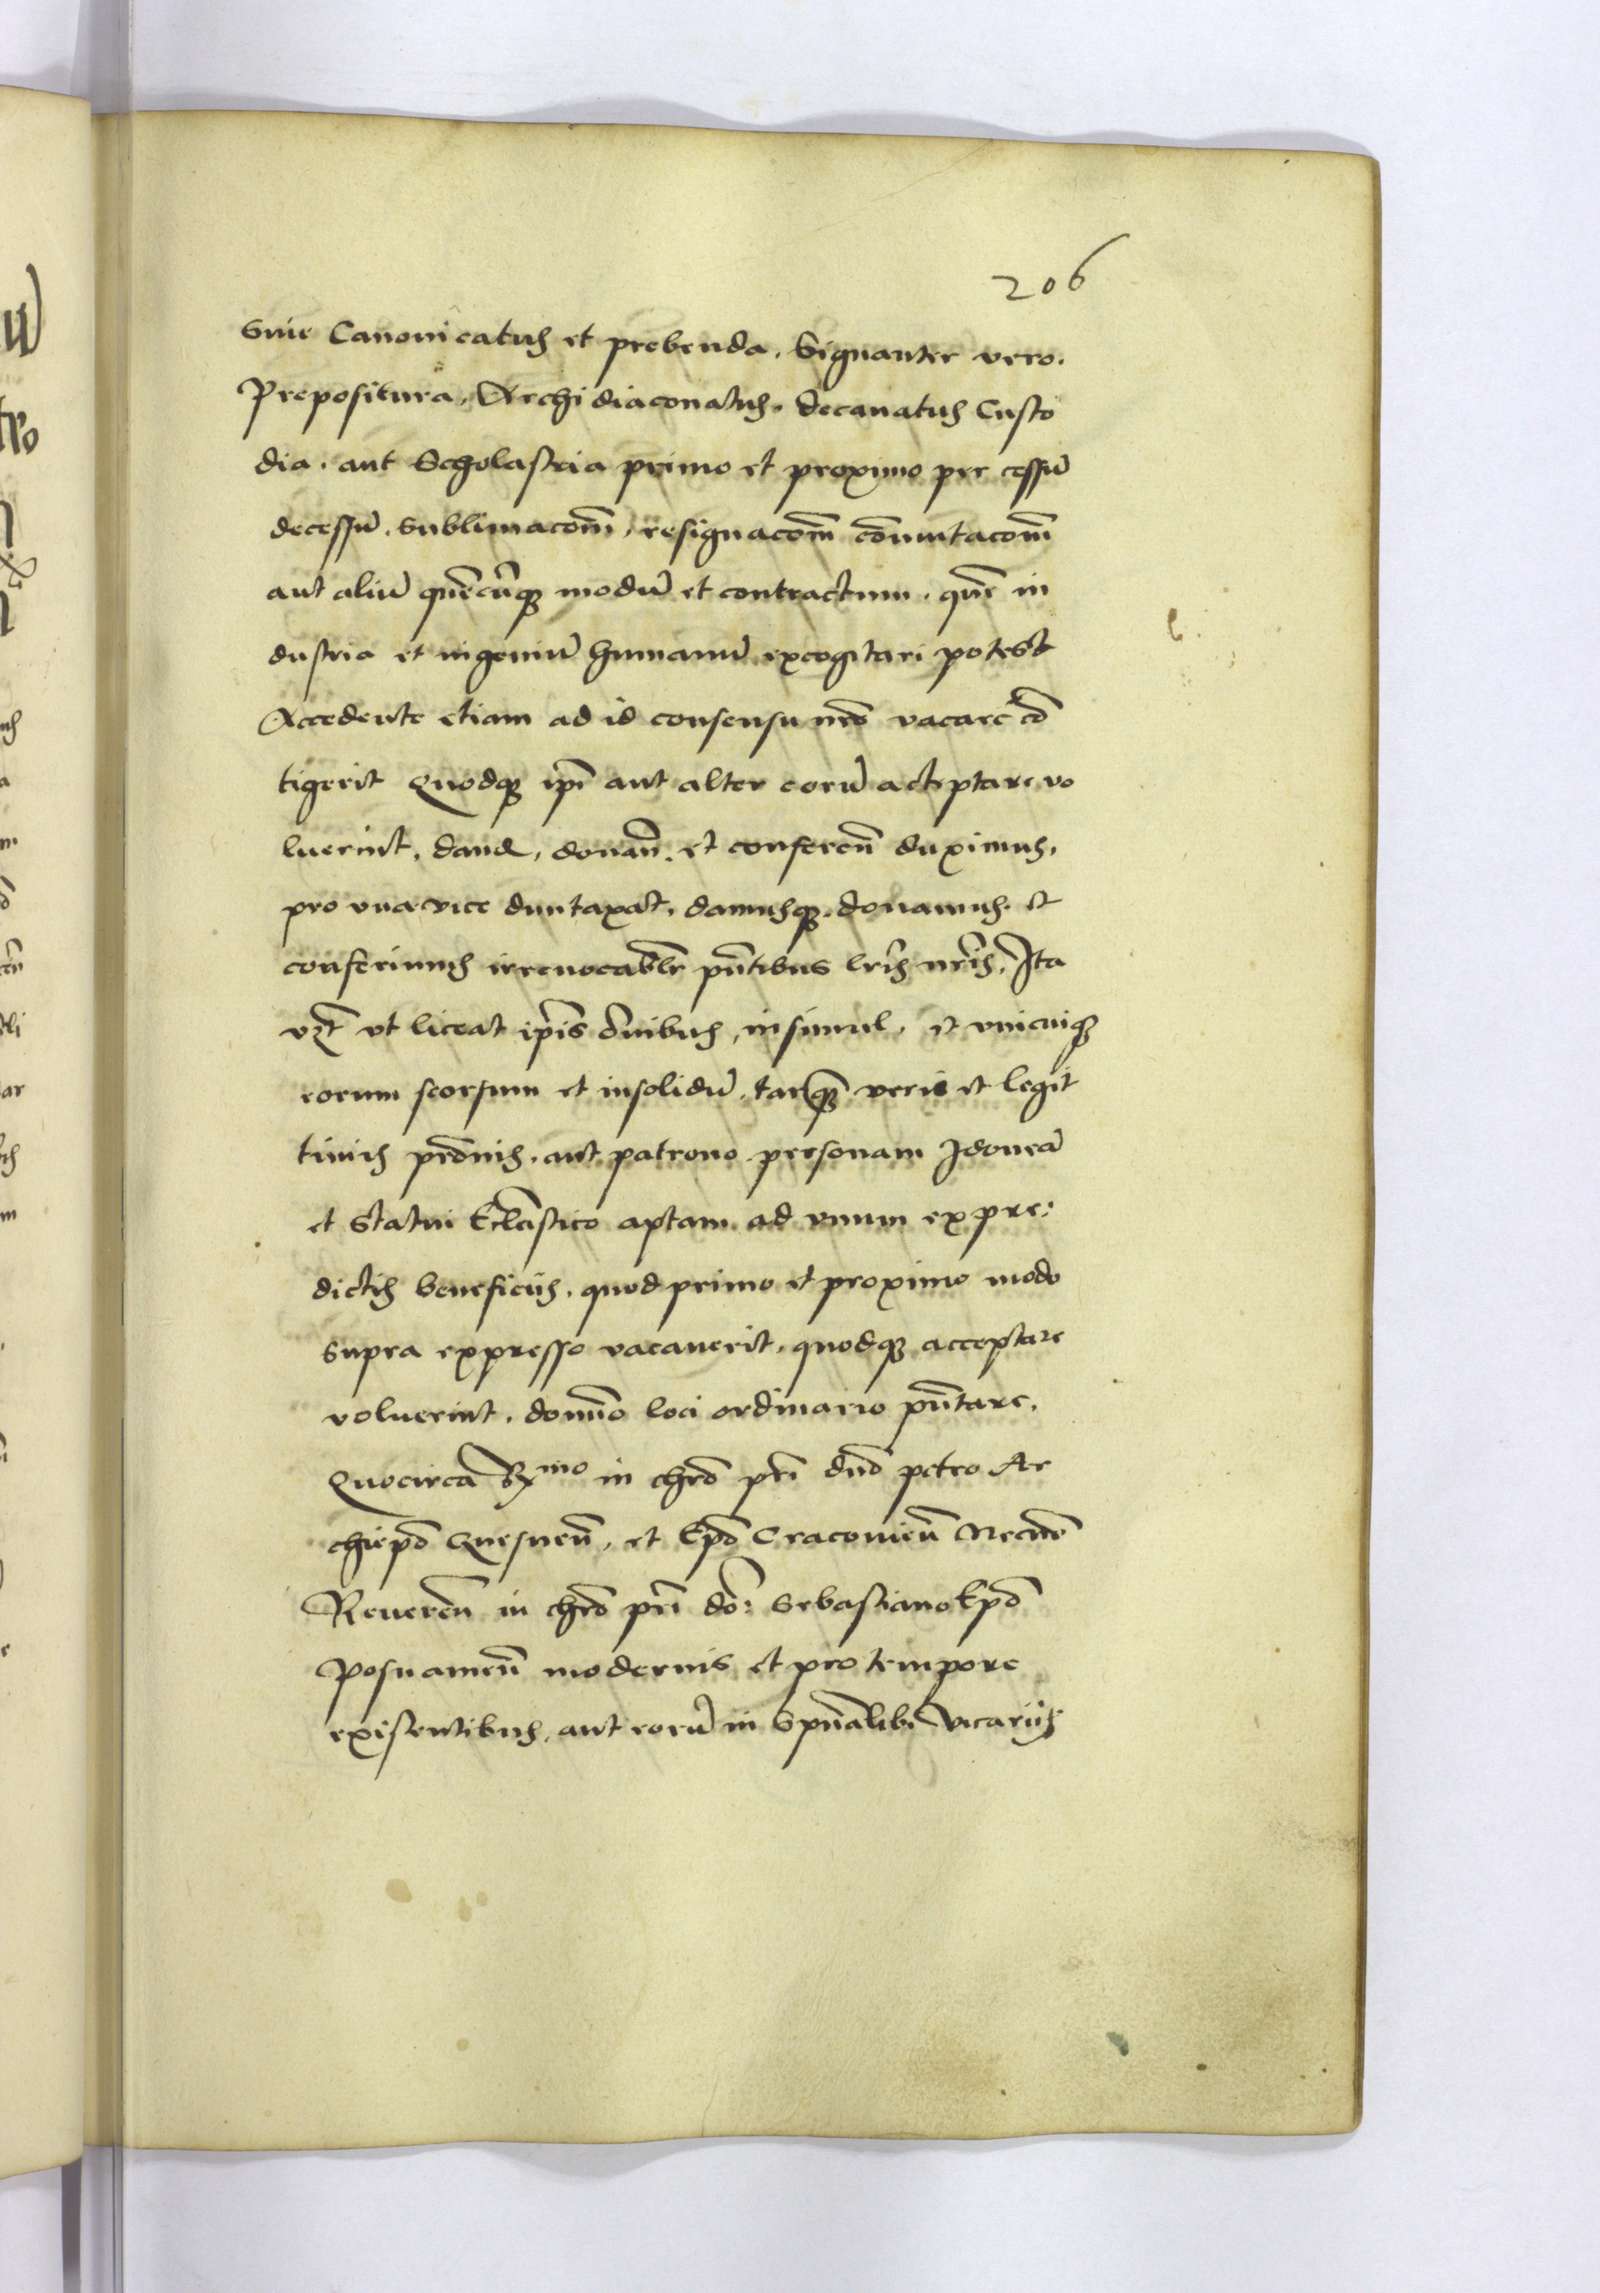 206
siue Canonicatus et prebenda. Signanter vero.
Prepositura, Archidiaconatus. decanatus Custo
dia. aut Scholastria primo et proximo per cessu͂
decessu͂. sublimaco͂m, resignaco͂m co͂mutaco͂m
aut aliu͂ que͂cu͂q modu͂ et contractum. que͂ in
dustria et ingeniu͂ humanu͂ excogitari potest
Accedente etiam ad id consensu nr͂o vacare co͂
tigerit Quodq ip͂i aut alter eoru͂ acceptare vo
luerint. dand, donan͂. et conferen͂ duximus.
pro vna vice duntaxat. damusq. donamus. et
conferimus irreuocabl͂r pn͂tibus lr͂is nr͂is. Ita
vz͂t vt liceat ip͂is o͂nibus, insimul. et vnicuiq
eorum seorsum et insolidu͂. tanq͂ veris et legit
timis pr͂onis. aut patrono personam Idonea͂
et statui Eccl͂astico aptam ad vnum ex pre:
dictis beneficiis. quod primo et proximo modo
supra expresso vacauerit. quodq acceptare
voluerint. domin͂o loci ordinario pn͂tare.
Quocirca R͂mo in chr͂o pr͂i dn͂o petro Ar
chiep͂o Gnesnen͂, et Ep͂o Cracouien͂ Necno͂
Reueren͂ in chr͂o pr͂i do͂: Sebastiano Ep͂o
Posnanien͂ modernis et pro tempore
existentibus. aut eoru͂ in Spu͂alib vicariis